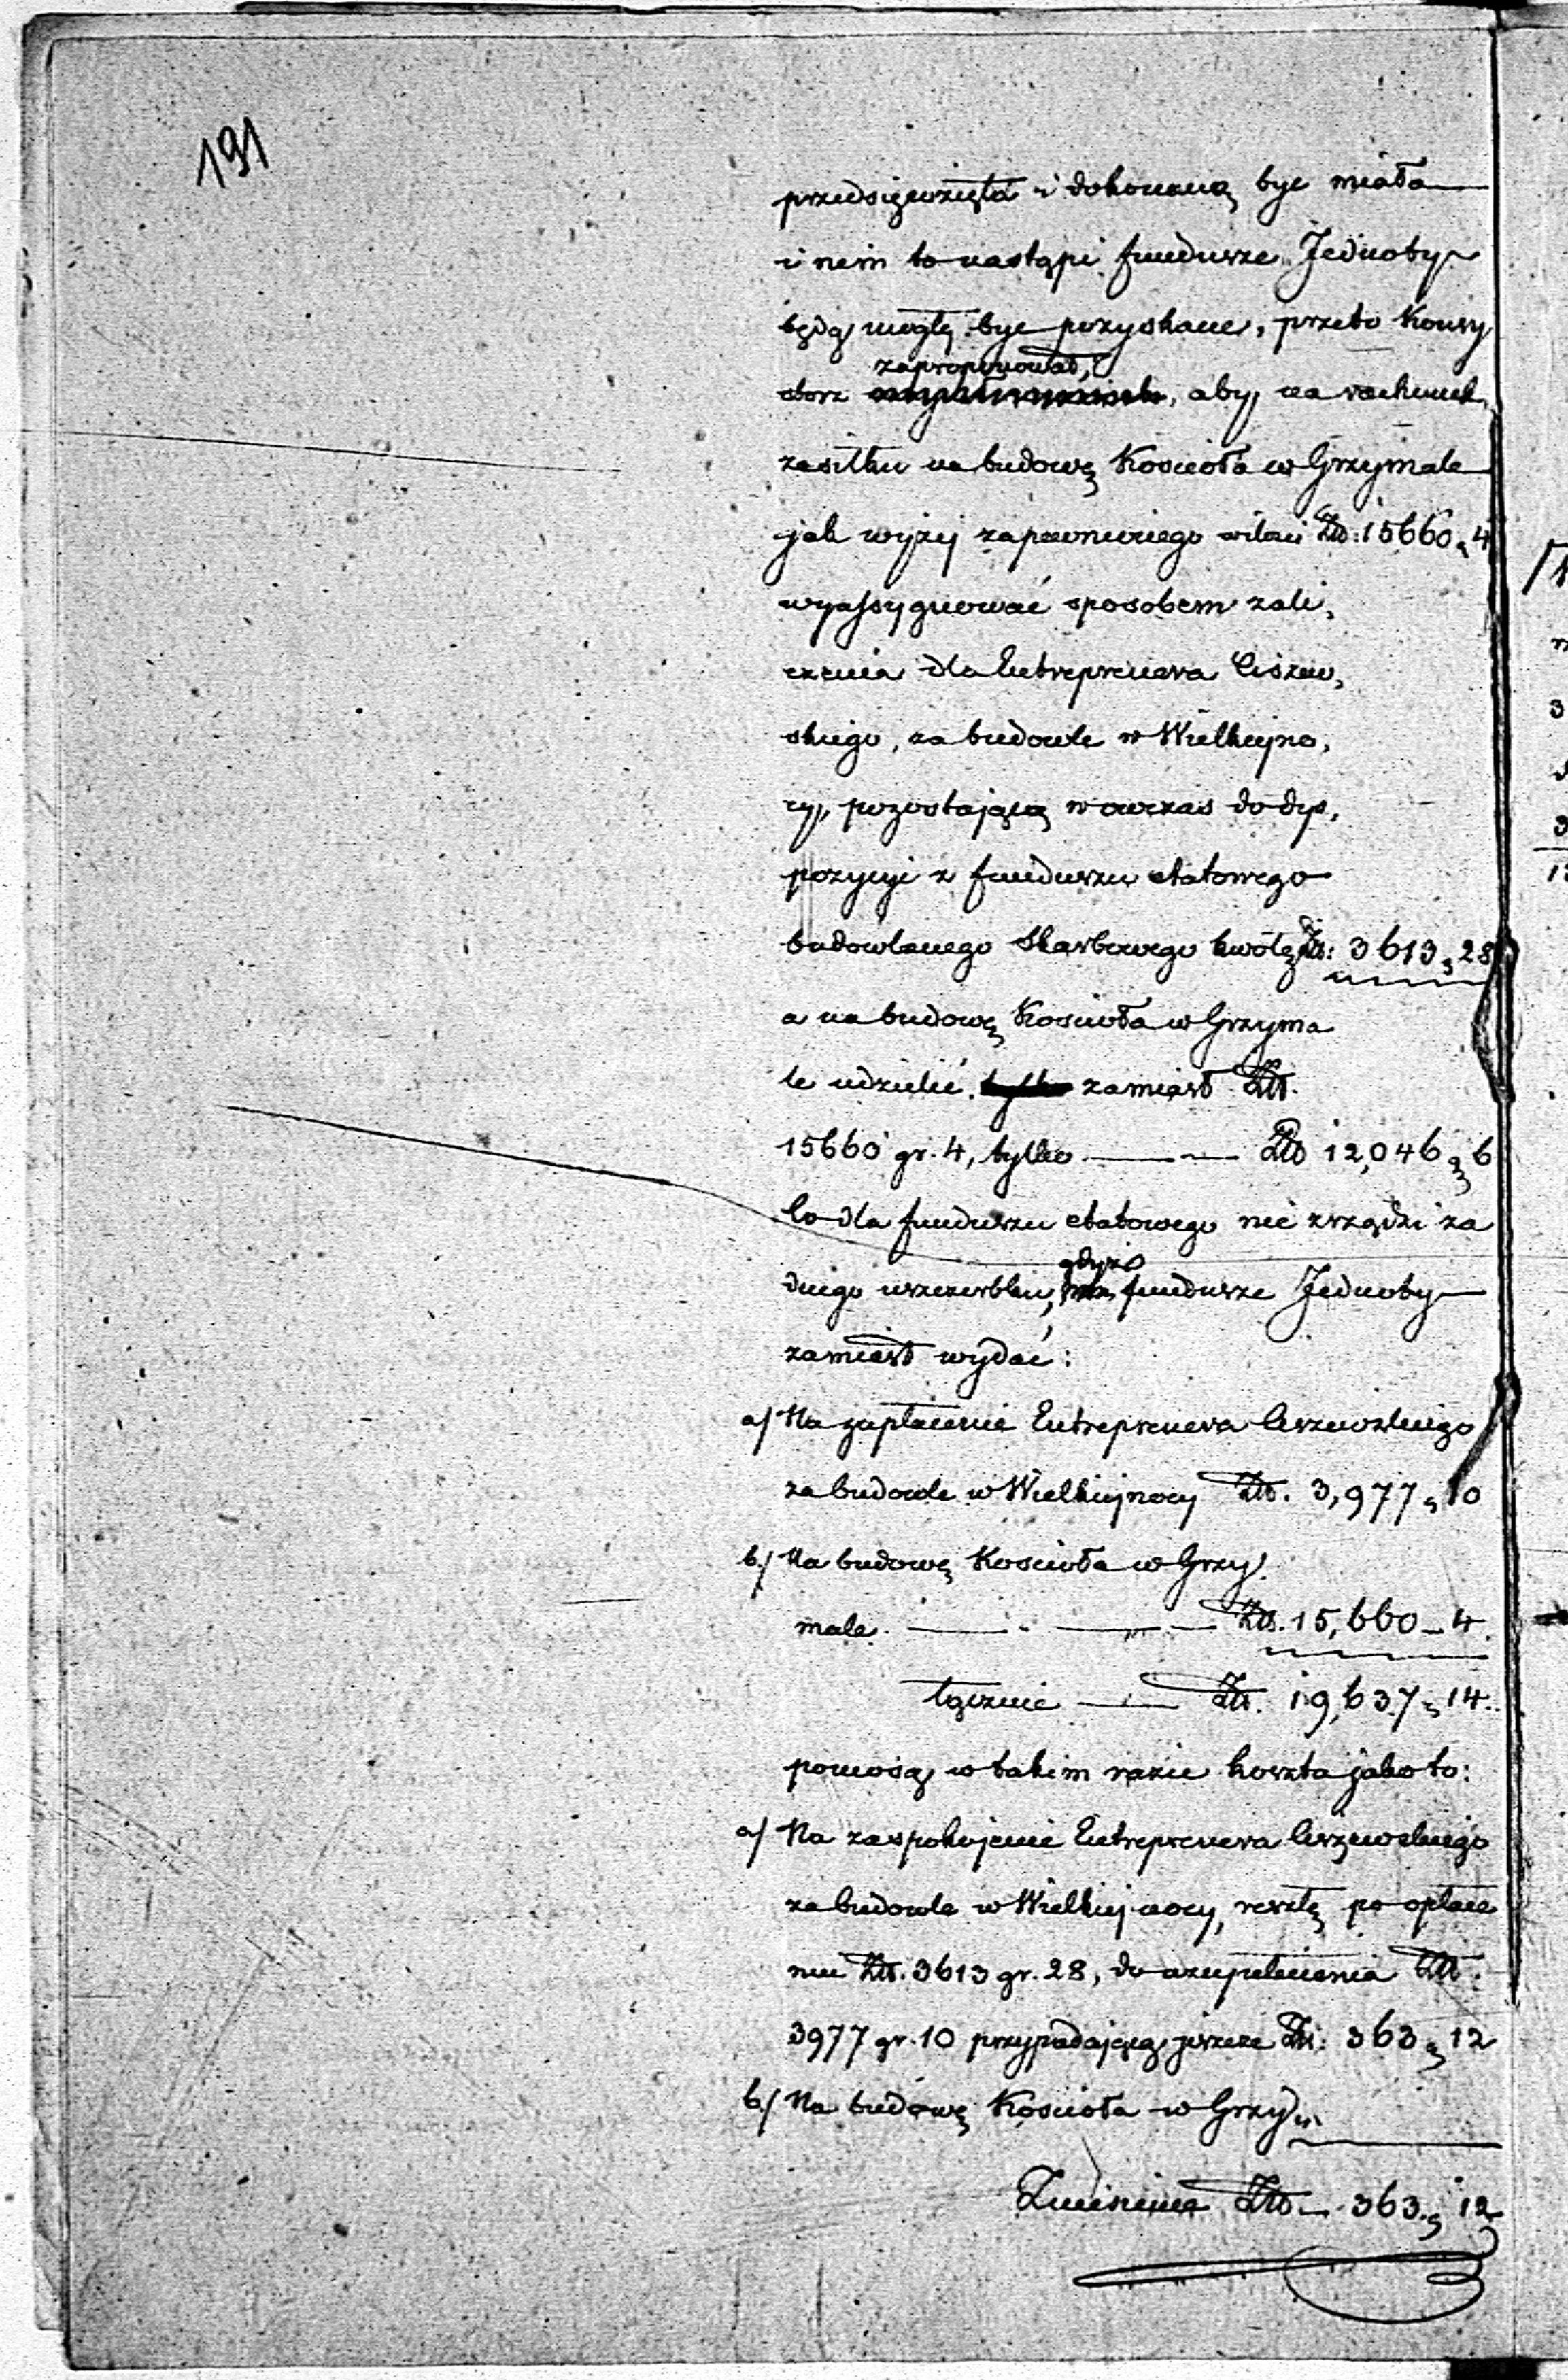 191
przedsięwzięta i dokonaną być miała
i nim to nastąpi fundusze Jednoty
będą mogły być pozyskane, przeto Konsy
zaproponował,
storz, aby na rachunek
zasiłku na budowę Kościoła w Grzymale
jak wyżej zapewnionego w ilości Złt: 15660 „ 4
wyassygnować sposobem zali,
czenia dla Entreprenera Ciszew,
skiego, za budowle w Wielkiejno,
cy, pozostającą wówczas do dys,
pozycyi z funduszu etatowego
budowlanego Skarbowego kwotę Złt: 3613 „ 28
a na budowę Kościoła w Grzyma
le udzielić tylko zamiast Złt.
15660 gr. 4, tylko — Złt 12,046 „ 6
Co dla funduszu etatowego nie zrządzi ża
gdyż
dnego uszczerbku, fundusze Jednoty
zamiast wydać:
a/ Na zapłacenie Entreprenera Ciszewskiego
za budowle w Wielkiejnocy Złt. 3,977 „ 10
b/ Na budowę Kościoła w Grzy,
male — Złt. 15,660 – 4.
łącznie — Złt. 19,637 „ 14.
poniosą w takim razie koszta jako to:
a/ Na zaspokojenie Entreprenera Ciszewskiego
za budowle w Wielkiejnocy, resztę po opłace
niu Złt. 3613 gr. 28, do uzupełnienia Złt.
3977 gr. 10 przypadającą jeszcze Złt: 363 „ 12
b/ Na budowę Kościoła w Grzy„
Złt – 363 „ 12